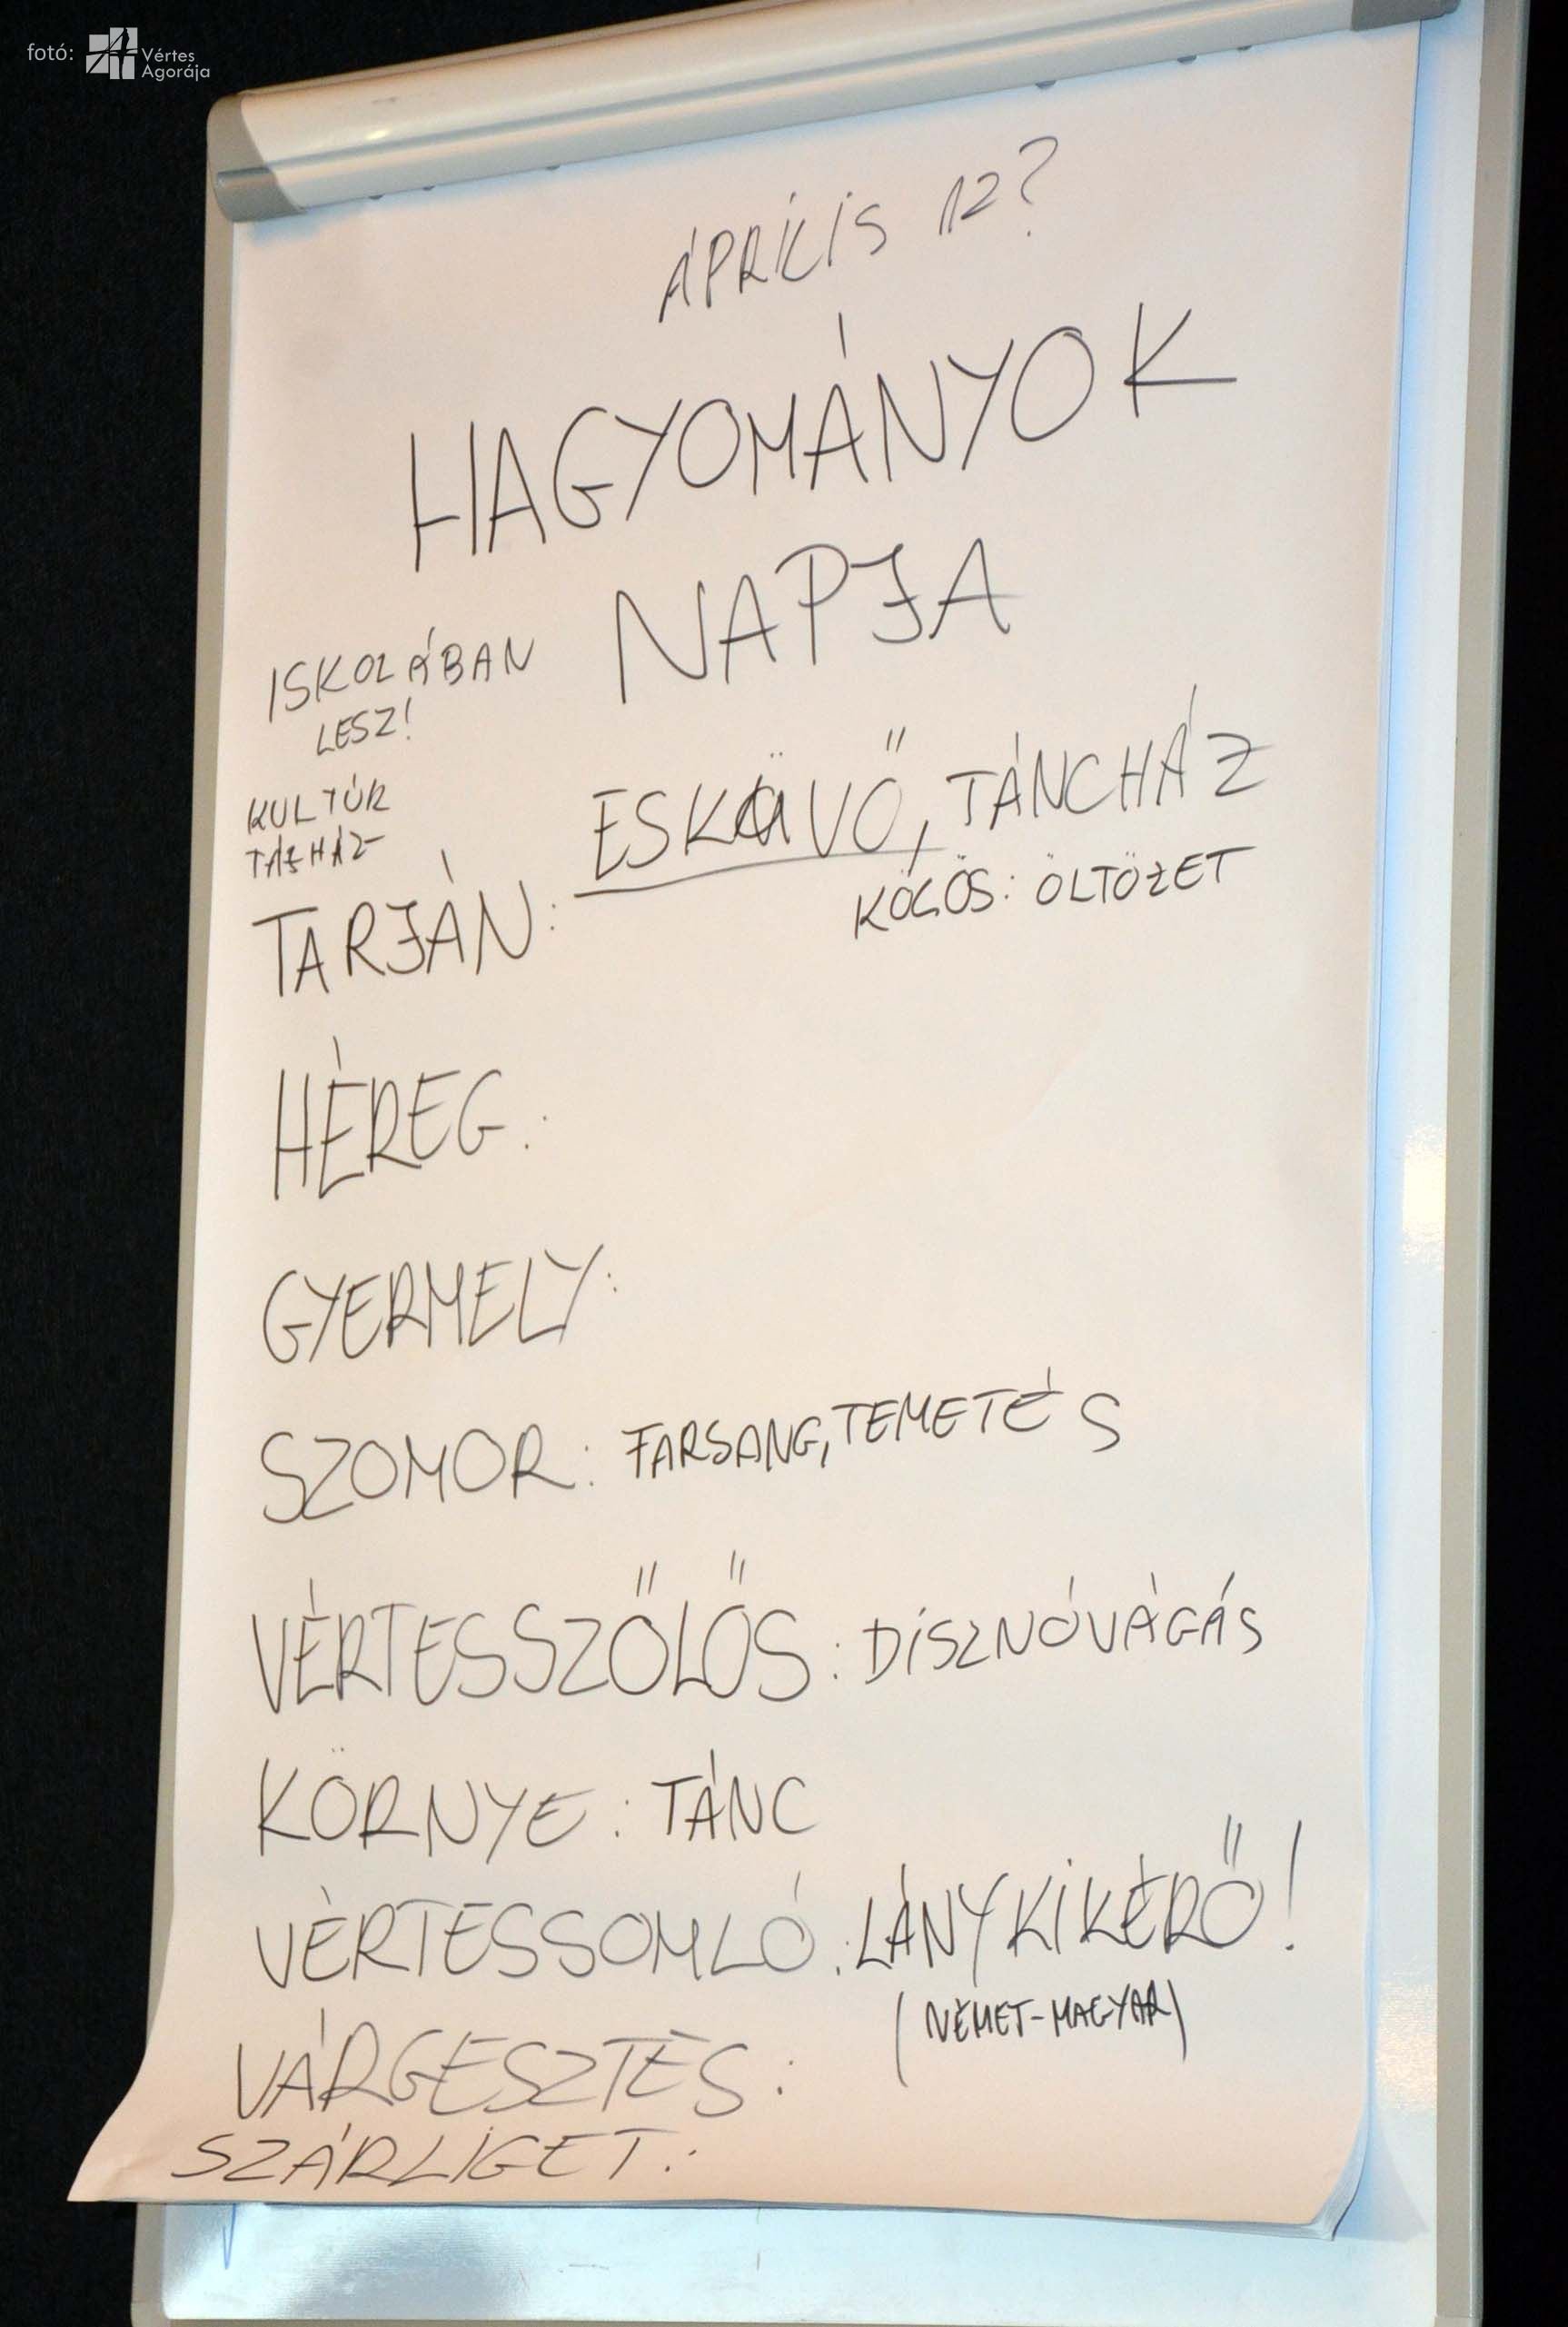 fotó: Vértes
Agorája
ÁPRILIS 12?
HAGYOMÁNYOK
NAPJA
ISKOLÁBAN
LESZ!
KULTÚR
HÁZ
TARJÁN: ESKÜVŐ, TÁNCHÁZ
ÖLTÖZET
HÉREG:
GYERMELY:
SZOMOR: FARSANG, TEMETÉS
VÉRTESSZŐLŐS: DISZNÓVÁGÁS
KÖRNYE: TÁNC
VÉRTESSOMLÓ: LÁNYKIKÉRŐ!
(NÉMET-MAGYAR)
VÁRGESZTES:
SZÁRLIGET: